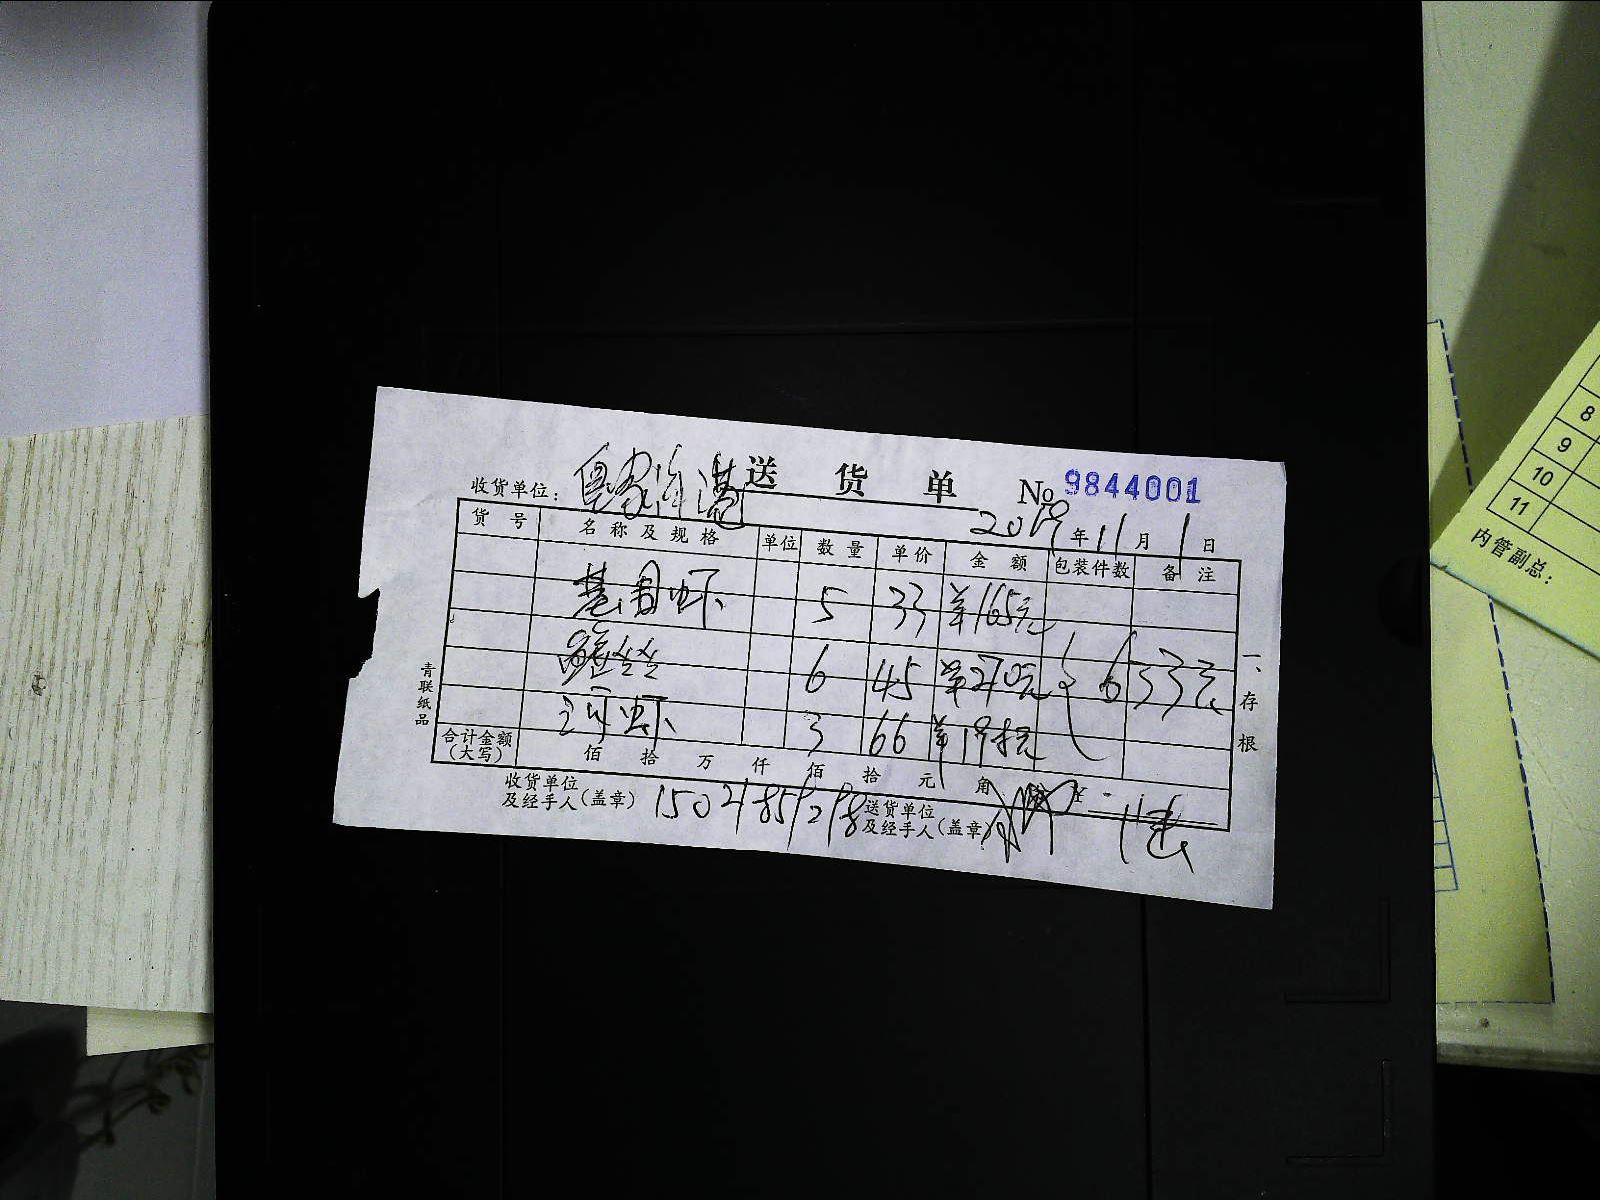 送 货 单 No 9844001
收货单位：
2019 年 11 月 1 日
货 号 名 称 及 规 格 单位 数 量 单价 金 额 包装件数 备 注
基围虾 5 33 165元
6 45 270元 633元
河虾 3 66 198元
合计金额（大写） 佰 拾 万 仟 佰 拾 元 角 ¥
收货单位及经手人（盖章） 送货单位及经手人（盖章）
青联纸品
一、存根
8
9
10
11
内管副总：